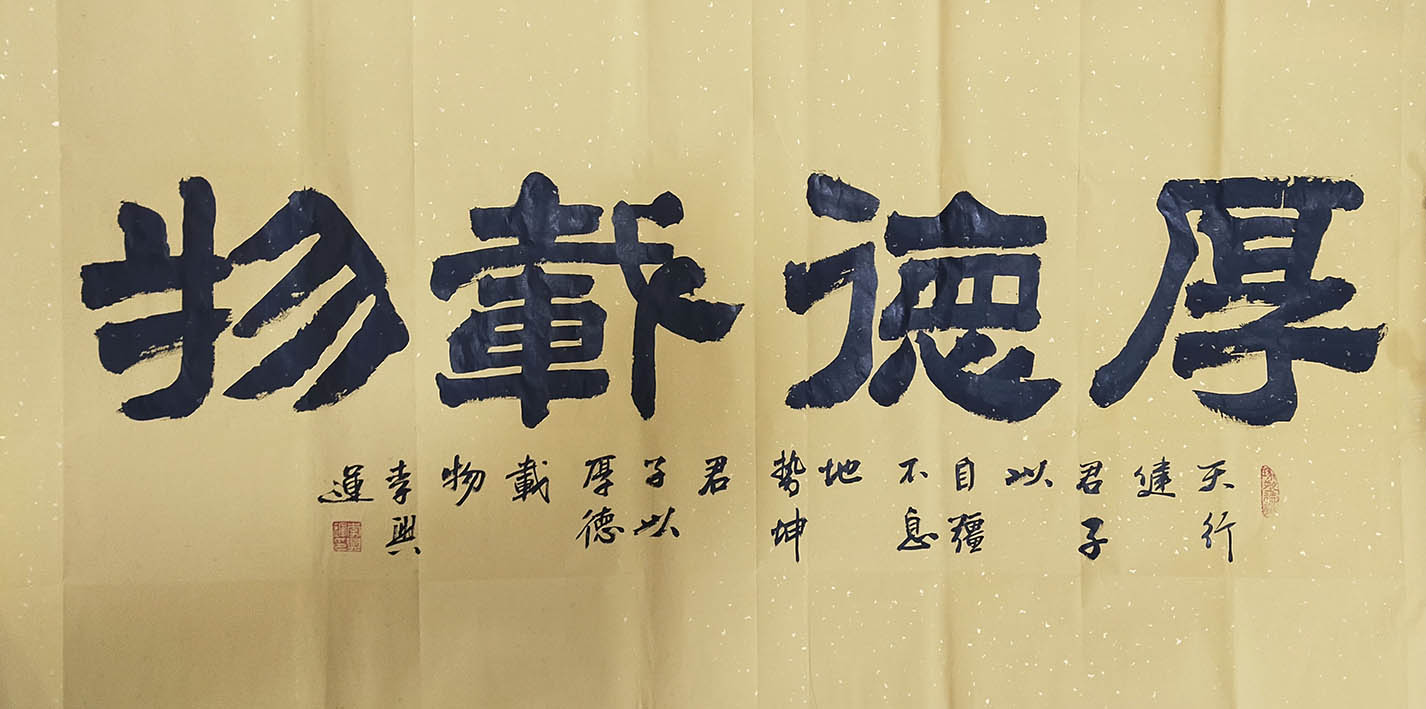 厚德載物
天行
健
君子
以
自彊
不息
地
勢坤
君
子以
厚德
載
物
李興
運